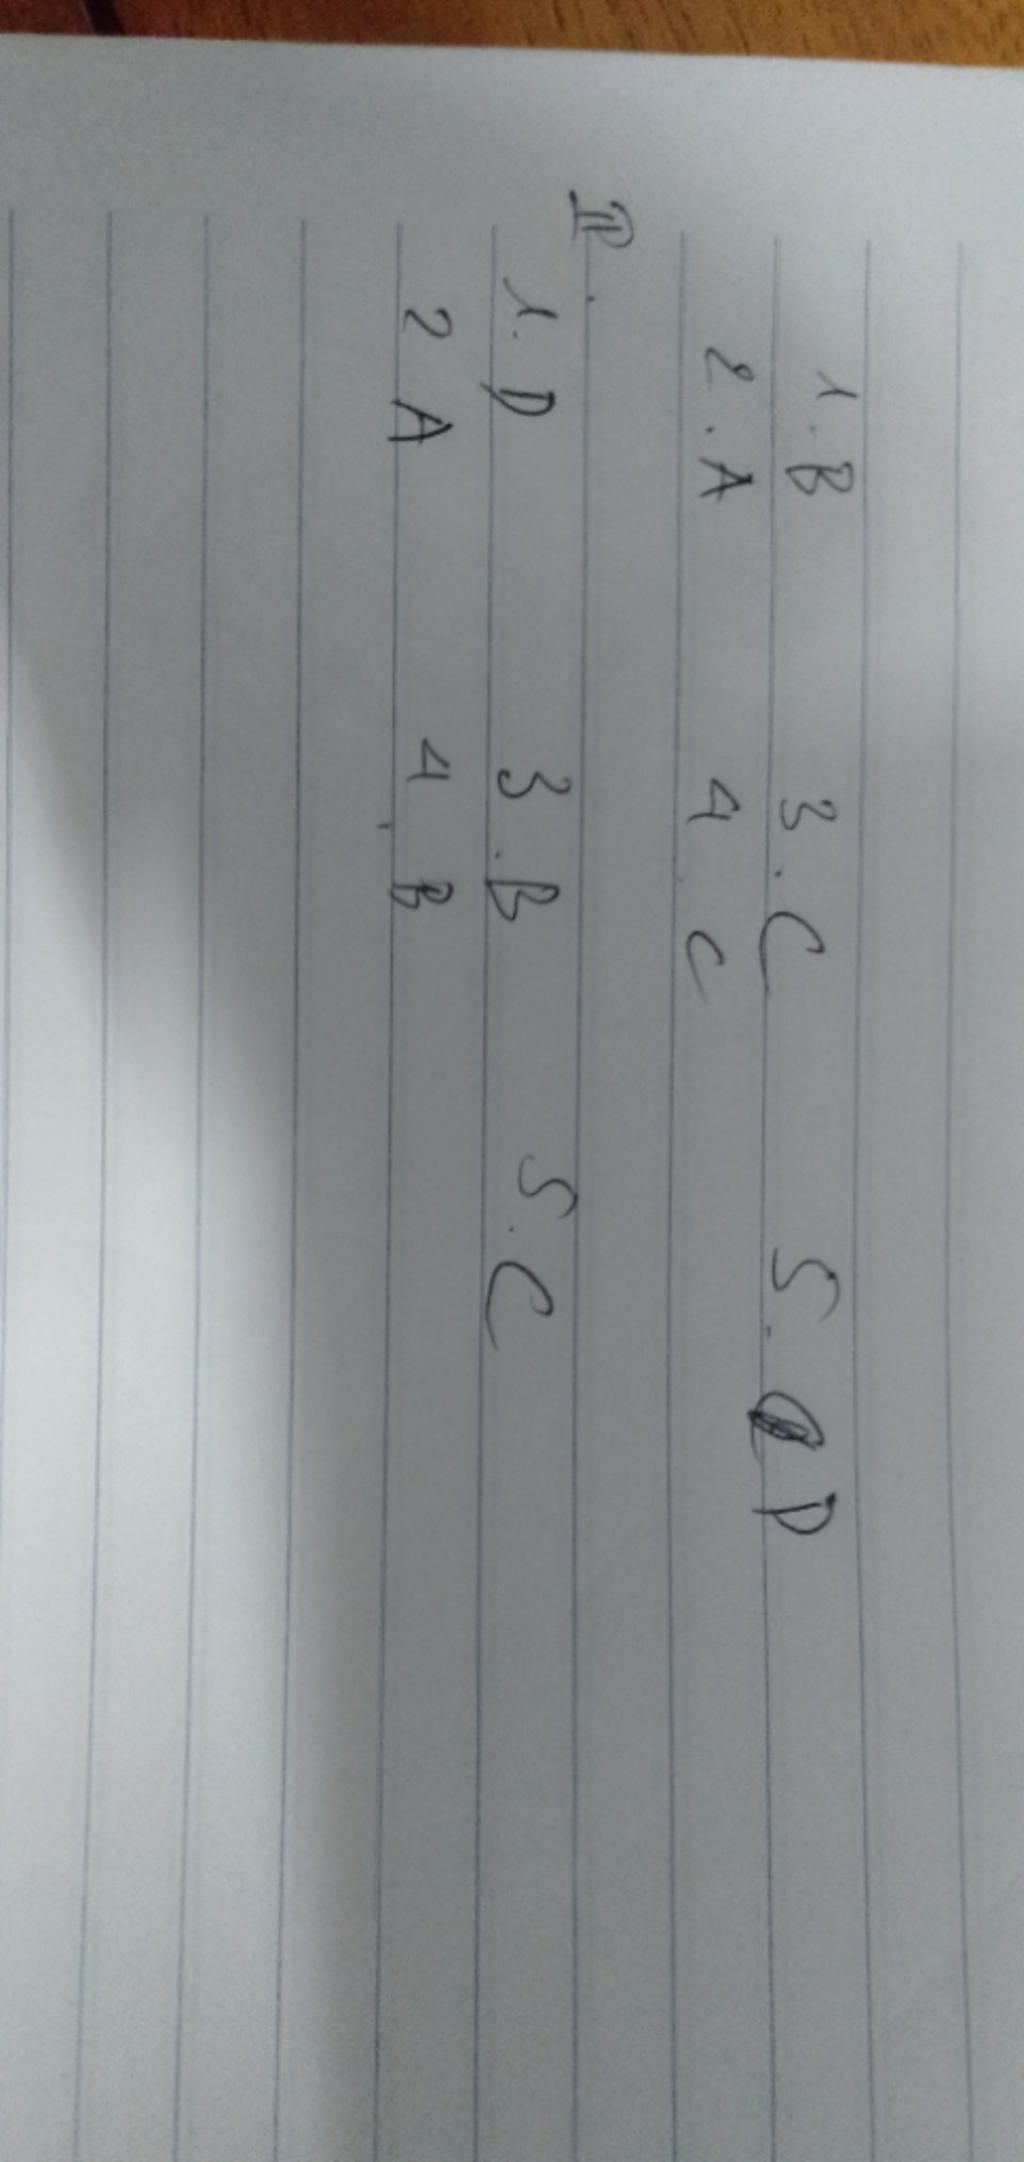 1. B 3. C 5. D
2. A 4 C
II.
1. D 3. B 5. C
2 A 4 B